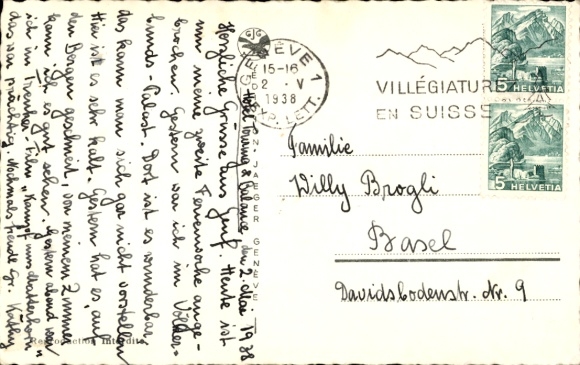 Hotel Touring & Balance den 2. Mai 1938
Herzliche Grüsse aus Genf. Heute ist
nun meine zweite Ferienwoche ange-
brochen. Gestern war ich im Völker-
bunds-Palast. Dort ist es wunderbar
das kann man sich gar nicht vorstellen
Hier ist es sehr kalt. Gestern hat es auf
den Bergen geschneit, von meinem Zimmer
kann ich es gut sehen. Gestern abend war
ich im Trenker-Film „Kampf ums Matterhorn"
das war prächtig. Nochmals freundl. Gr. Käthy
Reproduction Interdite
JAEGER GENÈVE
GENÈVE 1
15-16
2. V
1938
EXP. LETT.
VILLÉGIATUR
EN SUISSE
5 HELVETIA
5 HELVETIA
Familie
Willy Brogli
Basel
Davidsbodenstr. Nr. 9